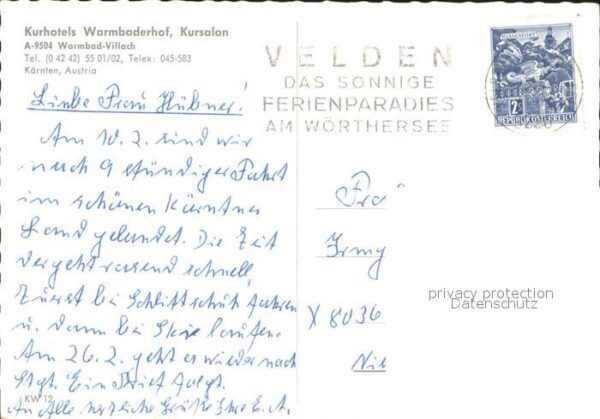 Kurhotels Warmbaderhof, Kursalon
A-9504 Warmbad-Villach
Tel. (0 42 42) 55 01/02, Telex: 045-583
Kärnten, Austria
VELDEN
DAS SONNIGE
FERIENPARADIES
AM WÖRTHERSEE
KLAGENFURT
2
REPUBLIK ÖSTERREICH
Liebe Frau Hübner!
Am 10.2. sind wir
nach 9 stündiger Fahrt
im schönen Kärntner
Land gelandet. Die Zeit
vergeht rasend schnell
Zuerst bei Schlittschuh fahren
u. dann bei Ski laufen.
Am 26.2. geht es wieder nach
Stgt. Ein Brief folgt.
An Alle herzliche Grüße Ihre E. A.
Fra
Irmg
8036
privacy protection
Datenschutz
KW 12